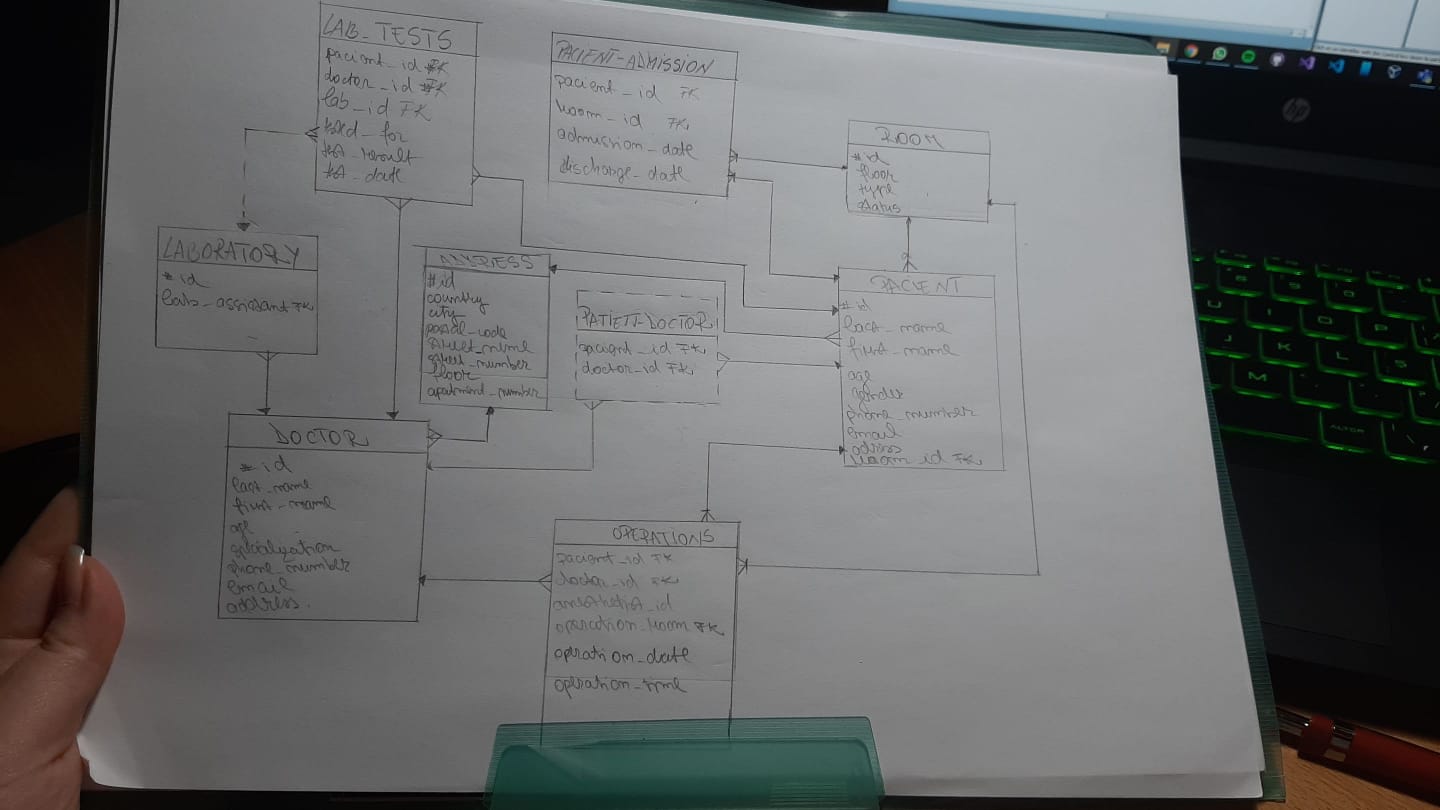 LAB_TESTS
pacient_id FK
doctor_id FK
lab_id FK
test_result
test_date
PACIENT-ADMISSION
pacient_id FK
room_id FK
admission_date
discharge_date
ROOM
#id
floor
type
status
LABORATORY
#id
lab_assistant FK
ADDRESS
#id
country
city
postal_code
street_name
street_number
floor
apartment_number
PATIETT-DOCTOR
pacient_id FK
doctor_id FK
PACIENT
#id
last_name
first_name
age
gender
phone_number
email
adress
room_id FK
DOCTOR
#id
last_name
first_name
age
specialization
phone_number
email
address
OPERATIONS
pacient_id FK
doctor_id FK
anesthetist_id
operation_room FK
operation_date
operation_time
hp
U
I
O
P
J
K
L
M
ALT GR